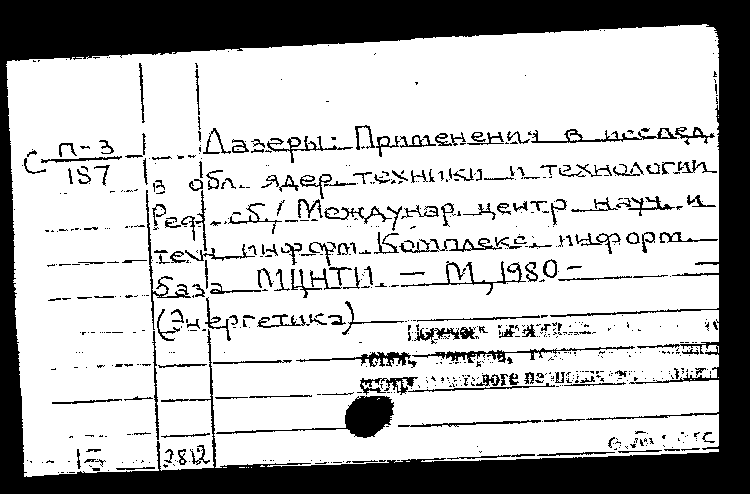 С П-3
187
Лазеры: Применения в исслед.
в обл. ядер. техники и технологии
Реф. сб./ Междунар. центр науч. и
техн. информ. Комплекс. информ.
база МЦНТИ. — М., 1980 - —
(Энергетика)
томов, номеров,
15 2812